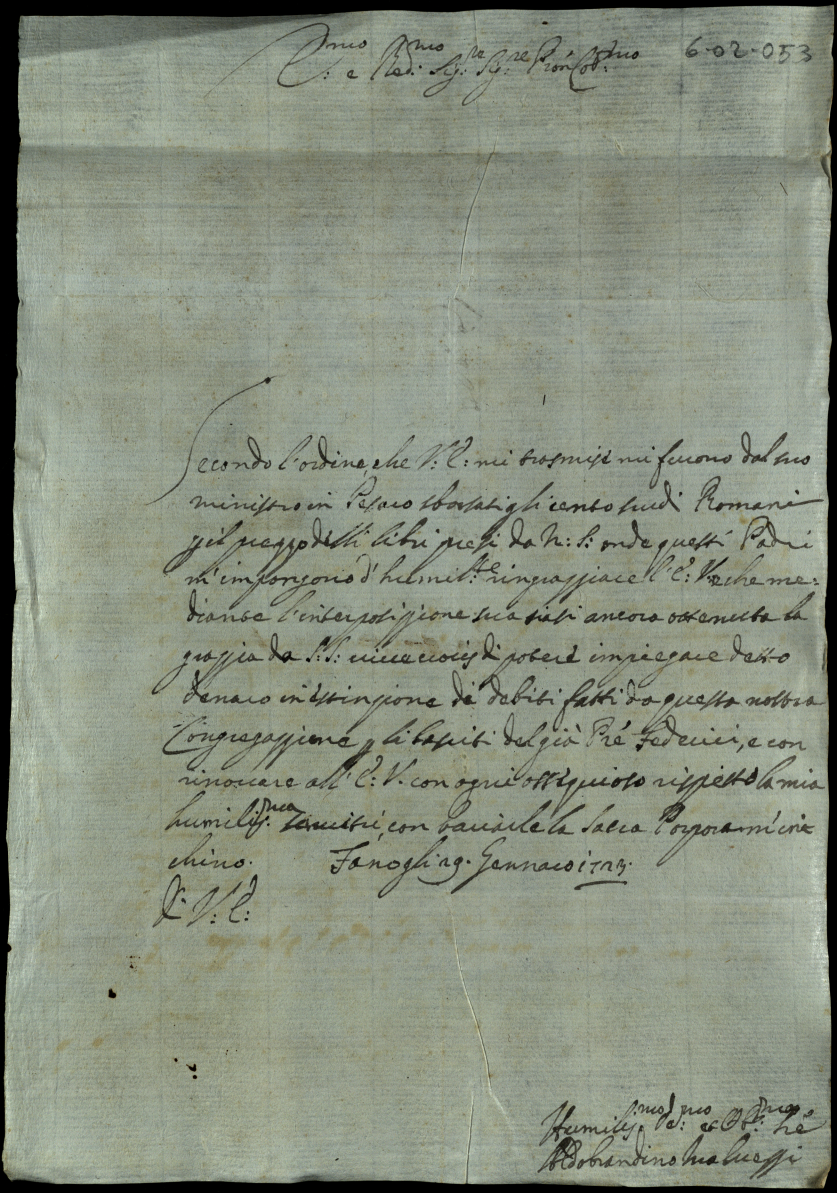 6-02-053
E.mo e Red.mo Sig.re Sig.re Pron Col.mo
Secondo l'ordine, che V: E: mi trasmise mi furono dal suo
ministro in Pesaro sborsati gli cento scudi Romani
p il prezzo delli libri presi da N: S: onde questi Padri
m'impongono d'humil.te ringraziare l'E: V: che me:
diante l'interposizione sua siasi ancora ottenuta la
grazia da S: S: di potere impiegare detto
denaro in estinzione de debiti fatti da questa nostra
Congregazione p li lasciti del già Pré Federici, e con
rinovare all'E: V. con ogni ossequioso rispetto la mia
humiliss.ma servitù, con baciarle la Sacra Porpora m'in
chino. Fano gli 29. Gennaro 1723.
D. V: E:
Humiliss.mo De.mo et Obl.mo
Aldobrandino Malvezzi